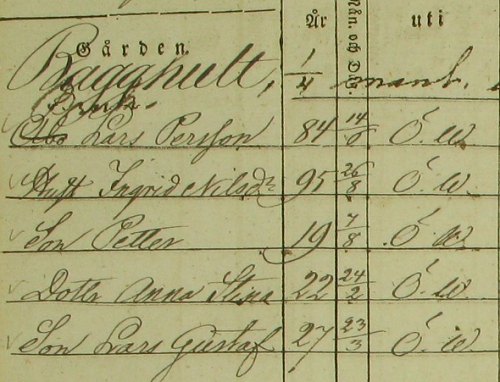 År Mån. och D. uti
Gården.
Bagghult, 1/4 mant.
Enk.
Åbo Lars Persson 84 14/8 Ö. W.
Hust Ingrid Nilsdr 95 26/8 Ö. W.
Son Petter 19 7/8 Ö W.
Dottr Anna Stina 22 24/2 Ö. W.
Son Lars Gustaf 27 23/3 Ö. W.